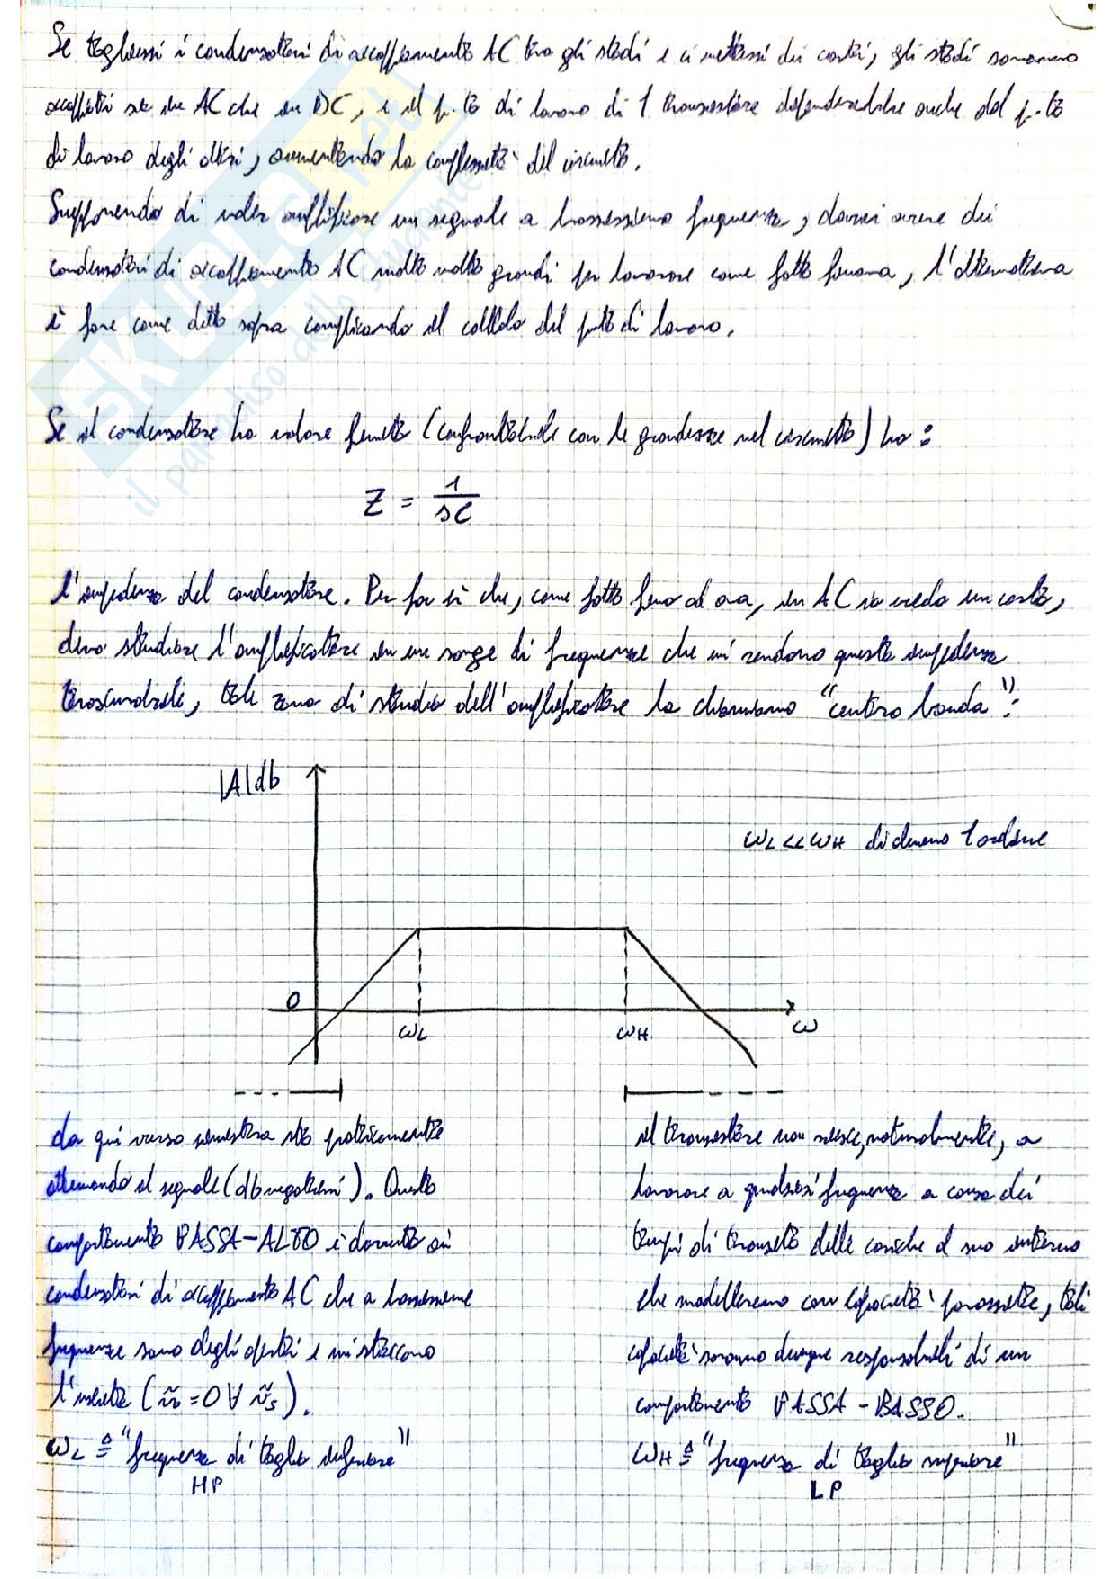 Se togliessi i condensatori di accoppiamento AC tra gli stadi e ci mettessi dei corti, gli stadi saranno
accoppiati sia in AC che in DC, e il p.to di lavoro di 1 transistore dipenderebbe anche dal p.to
di lavoro degli altri, aumentando la complessità del circuito.
Supponendo di voler amplificare un segnale a bassissima frequenza, dovrei avere dei
condensatori di accoppiamento AC molto molto grandi per lavorare come fatto finora, l'alternativa
è fare come detto sopra complicando il calcolo del punto di lavoro.
Se il condensatore ha valore finito (confrontabile con le grandezze nel circuito) ho:
Z = 1/sC
l'impedenza del condensatore. Per far sì che, come fatto fino ad ora, in AC io veda un corto,
devo studiare l'amplificatore in un range di frequenze che mi rendono questa impedenza
trascurabile, tale zona di studio dell'amplificatore la chiamiamo "centro banda":
|A|db
ωL << ωH di almeno 1 ordine
0
ωL
ωH
ω
da qui verso sinistra sto praticamente
attenuando il segnale (db negativi). Questo
comportamento PASSA-ALTO è dovuto ai
condensatori di accoppiamento AC che a bassissime
frequenze sono degli aperti e mi staccano
l'uscita (ṽu = 0 ∀ ṽs).
ωL ≜ "frequenza di taglio inferiore"
HP
il transistore non riesce, naturalmente, a
lavorare a qualsiasi frequenza a causa dei
tempi di transito delle cariche al suo interno
che modelleremo con capacità parassite, tali
capacità saranno dunque responsabili di un
comportamento PASSA-BASSO.
ωH ≜ "frequenza di taglio superiore"
LP
SKUOLA.net
il paradiso dello studente